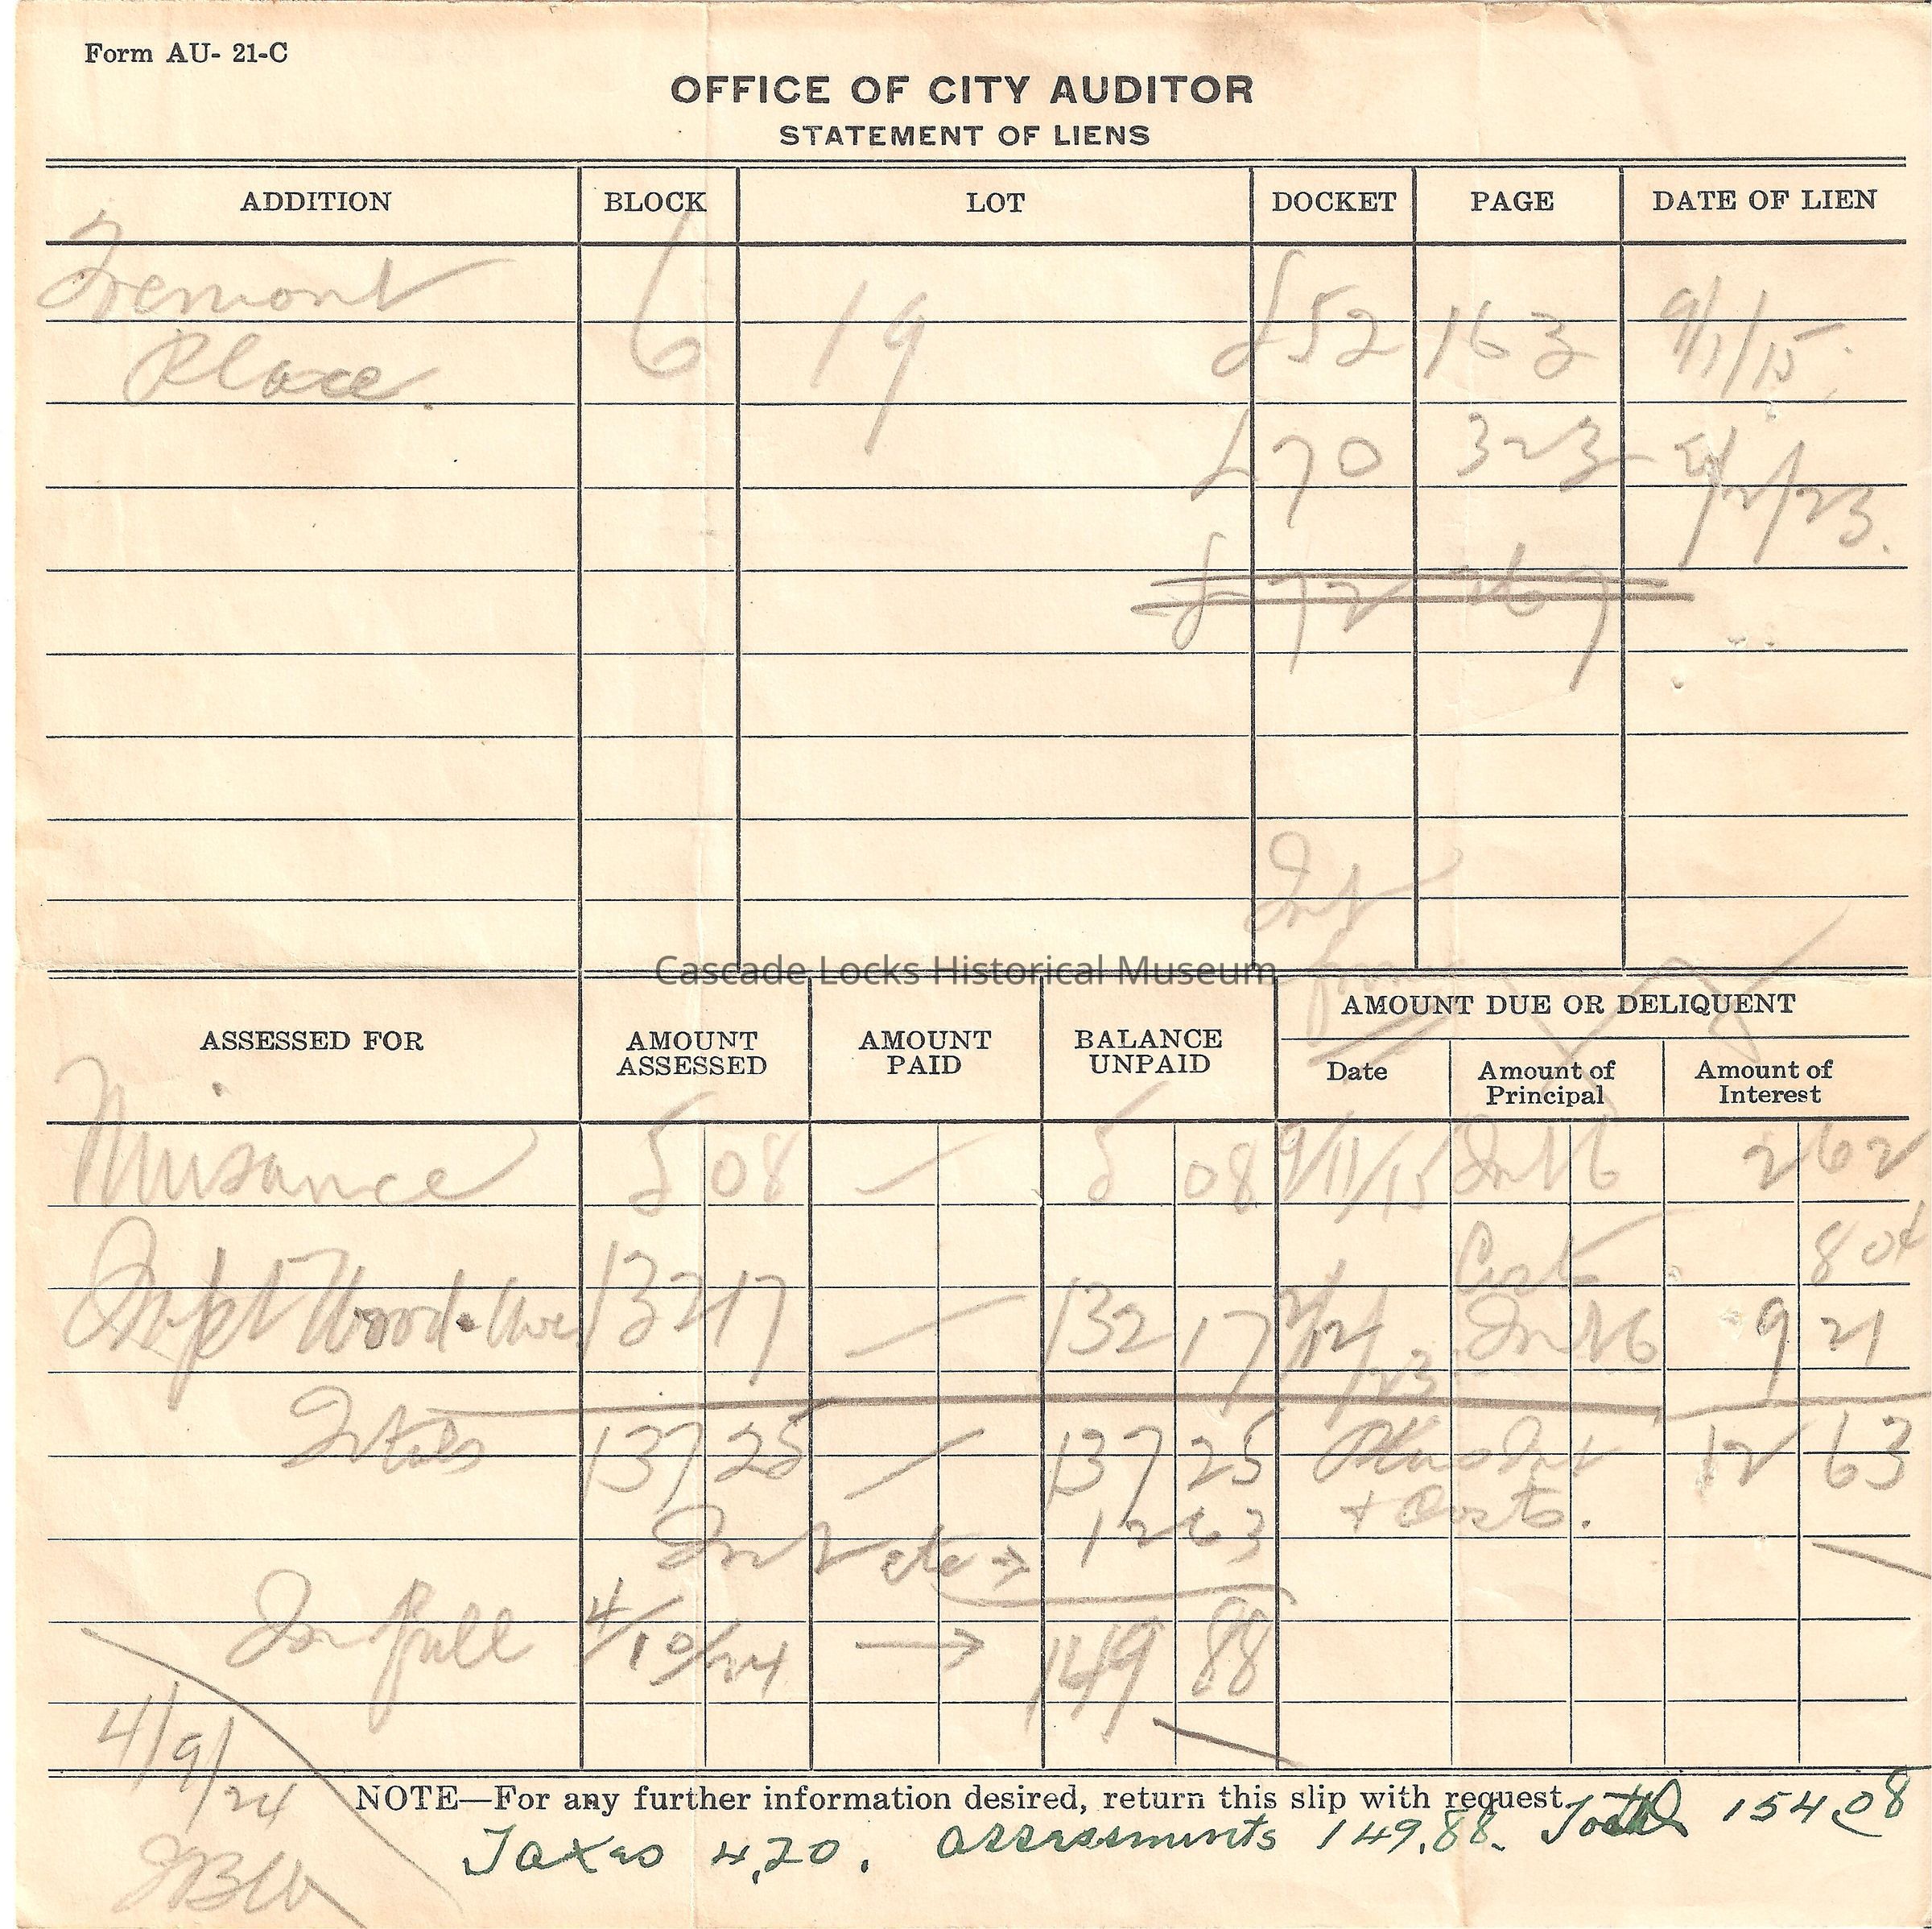 Form AU- 21-C
OFFICE OF CITY AUDITOR
STATEMENT OF LIENS
ADDITION BLOCK LOT DOCKET PAGE DATE OF LIEN
Fremont 6 19 £52 163 9/11/15
Place.
£70 323 2/23.
£72 267
Int
from
Cascade Locks Historical Museum
AMOUNT DUE OR DELIQUENT
ASSESSED FOR AMOUNT ASSESSED AMOUNT PAID BALANCE UNPAID Date Amount of Principal Amount of Interest
Nuisance 5 08 — 5 08 9/11/15 Int 6 2 62
Cost 80¢
Impt Wood. Ave 132 17 — 132 17 12/23 Int 6 9 21
Totals 137 25 — 137 25 Plus Int 12 63
+ Costs.
Int etc → 12 63
In full 4/10/24 → 149 88
4/9/24
NOTE—For any further information desired, return this slip with request.
Taxes 4.20. assessments 149.88. Total 154.08